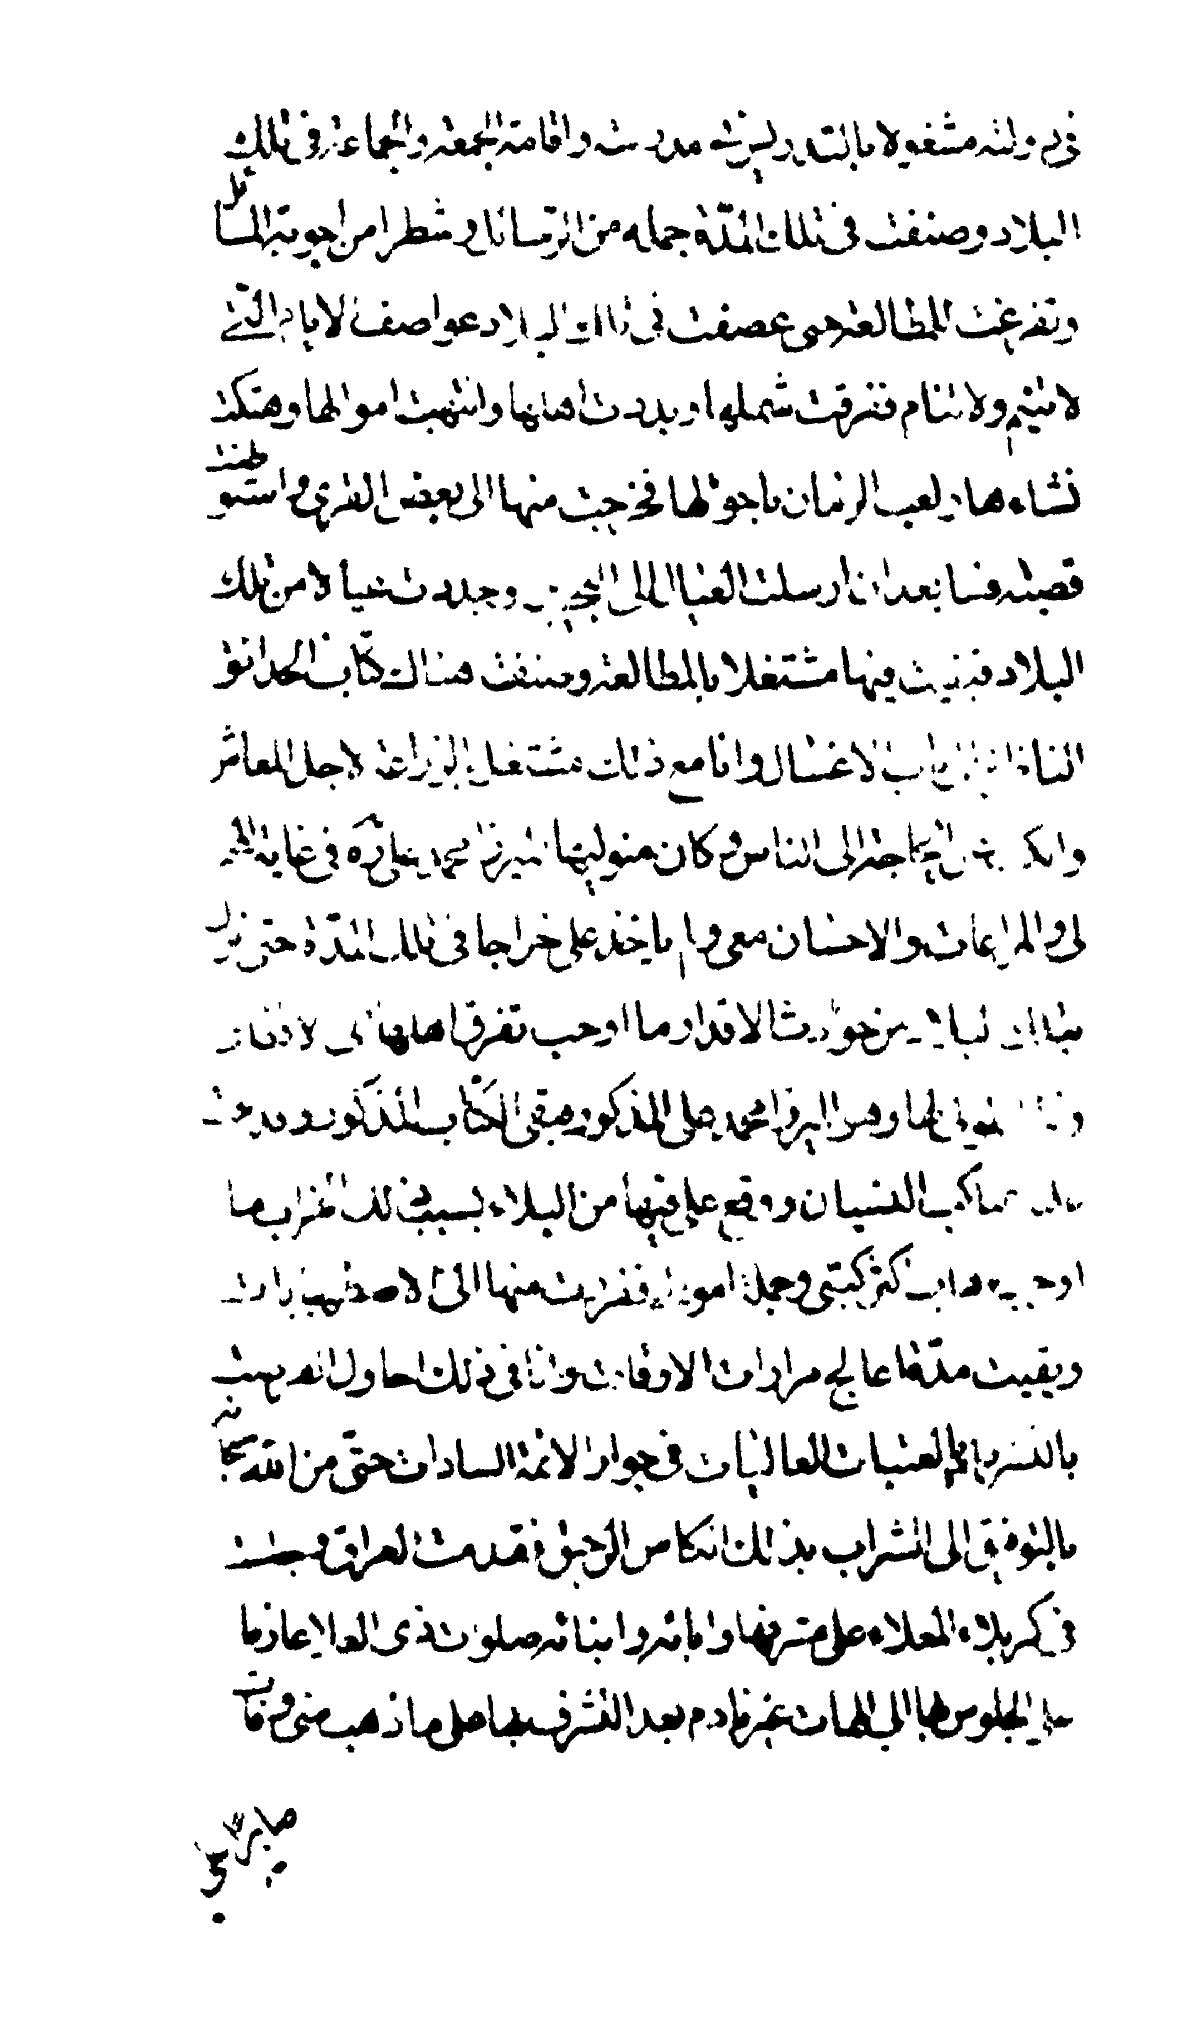 في دولته مشغولا بالتدريس في مدرسته واقامة الجمعة والجماعة في تلك
البلاد وصنفت في تلك المدّة جملة من الرسائل وشطرا من اجوبة المسائل
وتفرغت للمطالعة حتى عصفت في تلك البلاد عواصف الايام التي
لا تنيم ولا تنام ففرقت شملها وبددت اهلها وانتهبت اموالها وهتكت
نساءها ولعب الزمان باحوالها فخرجت منها الى بعض القرى واستوطنت
قصبة فسا بعد ان ارسلت العيال الى البحرين وجددت عيالا من تلك
البلاد فبقيت فيها مشتغلا بالمطالعة وصنفت هناك كتاب الحدائق
الناضرة الى باب الاغسال وانا مع ذلك مشتغل بالزراعة لاجل المعاش
والكف عن الحاجة الى الناس وكان متوليها ميرزا محمد علي ره في غاية المحبة
لي والمراعات والاحسان معي ولم ياخذ علي خراجا في تلك المدّة حتى نزل
بتلك البلاد من حوادث الاقدار ما اوجب تفرق اهلها الى الاقطار
متوليها وهو الميرزا محمد علي المذكور وبقي الكتاب المذكور
عناكب النسيان ووقع علي فيها من البلاء بسبب ذلك الخراب ما
اوجب ذهاب اكثر كتبي وجملة اموالي ففررت منها الى الاصطهبانات
وبقيت مدّة اعالج مرارات الاوقات وانا في ذلك احاول الفرصة
بالتشرف بالعتبات العاليات في جوار الائمة السادات حتى من الله سبحانه
بالتوفيق الى الشراب بذلك الكاس الرحيق فقدمت العراق وجلست
في كربلاء المعلاء على مشرفها وابائه وابنائه صلوات ذي العلا عازما
على الجلوس بها الى الممات غير نادم بعد التشرف بها على ما ذهب مني وفات
صابرا